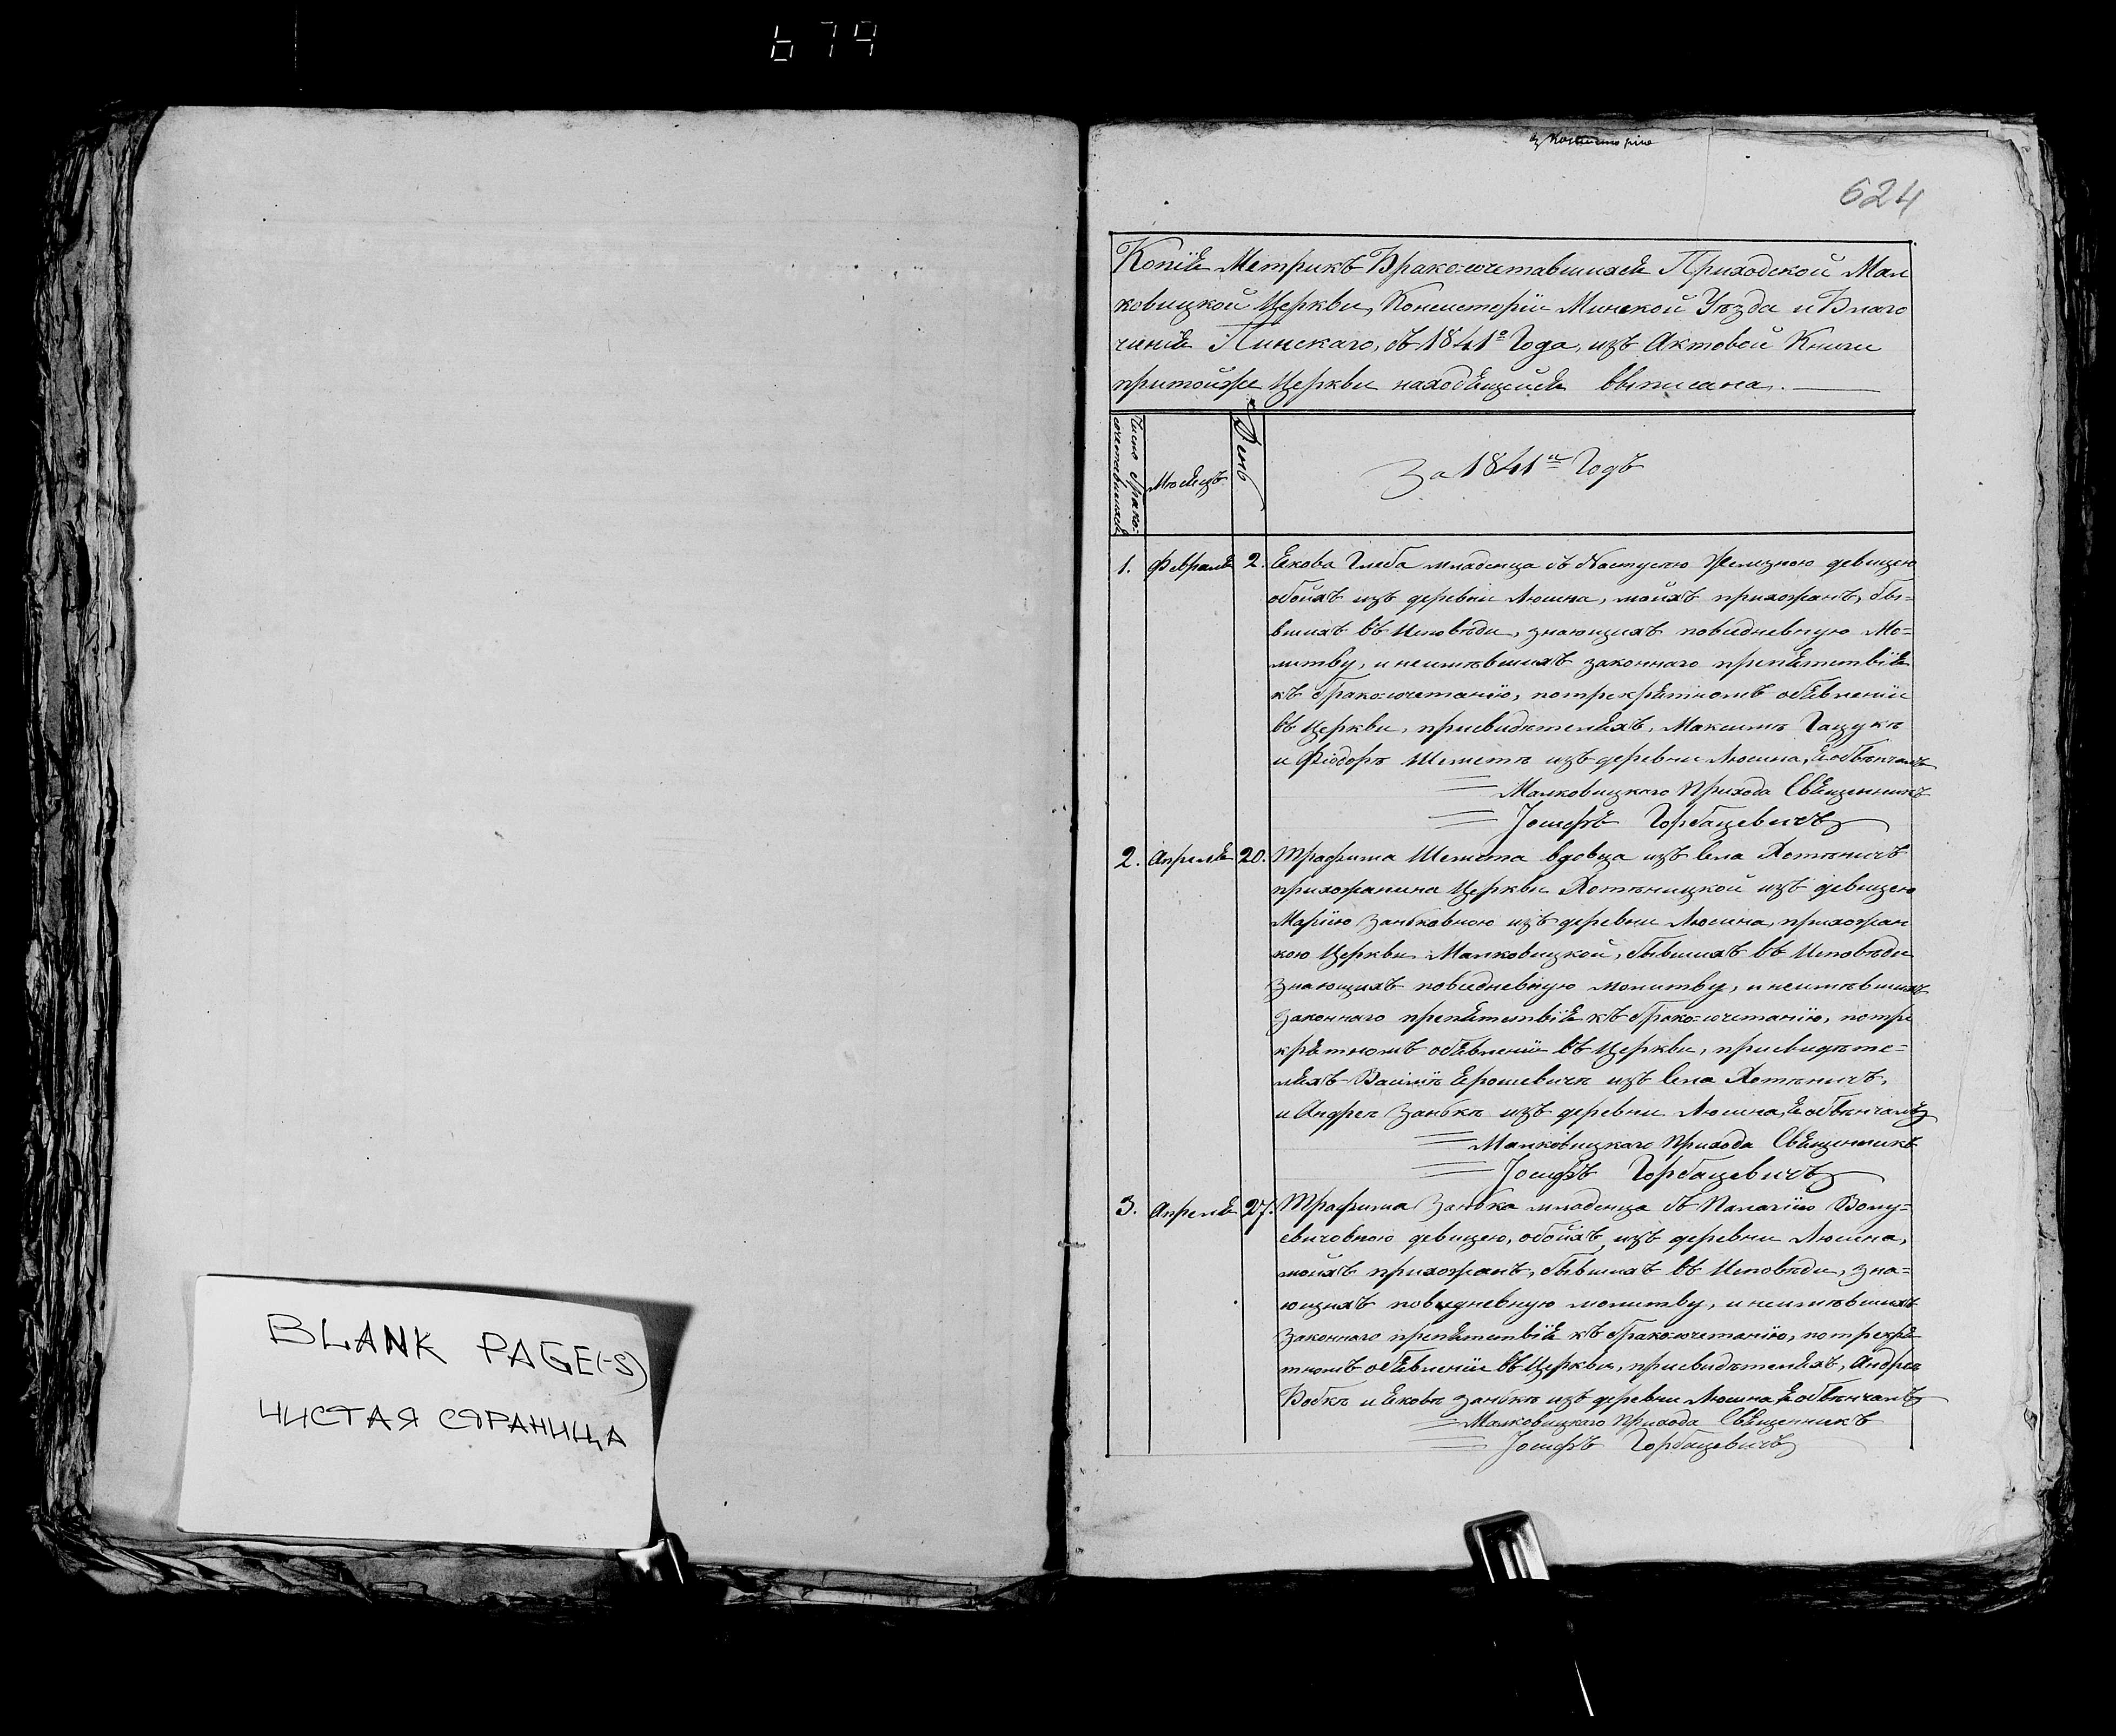 679
624
Копія Метрикъ Бракосочетавшихся Приходской Мал
ковицкой Церкви, Консисторіи Минской Уѣзда и Благо
чинія Пинскаго, съ 1841º Года, изъ Актовой Книги
притойже Церкви находящейся выписана.
Число брако-
сочетавшихся
Мѣсяцъ
День
За 1841й Годъ
1. Февраля 2. Якова Глеба младенца съ Настусею Желизною девицею
обоихъ изъ деревни Люсина, моихъ прихожанъ, бы-
вшихъ въ Исповѣди, знающихъ повседневную Мо-
литву, и неимѣвшихъ законнаго препятствія
къ бракосочетанію, потрекрятномъ обявленіи
въ Церкви, присвидѣтеляхъ, Максимѣ Гацукѣ
и Фіодорѣ Шеметѣ изъ деревни Люсина, Я обвѣнчалъ
Малковицкаго Прихода Священникъ
Іосифъ Горбацевичъ
2. Апреля 20. Трафима Шемета вдовца изъ Села Хотѣничъ
прихожанина Церкви Хотѣницкой изъ девицею
Маріею Занбковною изъ деревни Люсина, прихожан
кою Церкви Малковицкой, бывшихъ въ Исповѣди
знающихъ повседневную молитву, и неимѣвшихъ
законнаго препятствія къ бракосочетанію, потре
крятномъ обявленіи въ Церкви, присвидѣте-
ляхъ Василѣ Ярошевичѣ изъ Села Хотѣничъ,
и Андрее Занбкѣ изъ деревни Люсина, Я обвѣнчалъ
Малковицкаго Прихода Священникъ
Іосифъ Горбацевичъ
3. Апреля 27. Трафима Занбка младенца съ Палагіею Волу-
евичовною девицею, обоихъ изъ деревни Люсина,
моихъ прихожанъ, бывшихъ въ Исповѣди, зна-
ющихъ повседневную молитву, и неимѣвшихъ
законнаго препятствія къ бракосочетанію, потрекря
тномъ обявленіи въ Церкви, присвидѣтеляхъ, Андрее
Бобкѣ и Яковѣ Занбкѣ изъ деревни Люсина Я обвѣнчалъ
Малковицкаго Прихода Священникъ
Іосифъ Горбацевичъ
BLANK PAGE(-S)
ЧИСТАЯ СТРАНИЦА